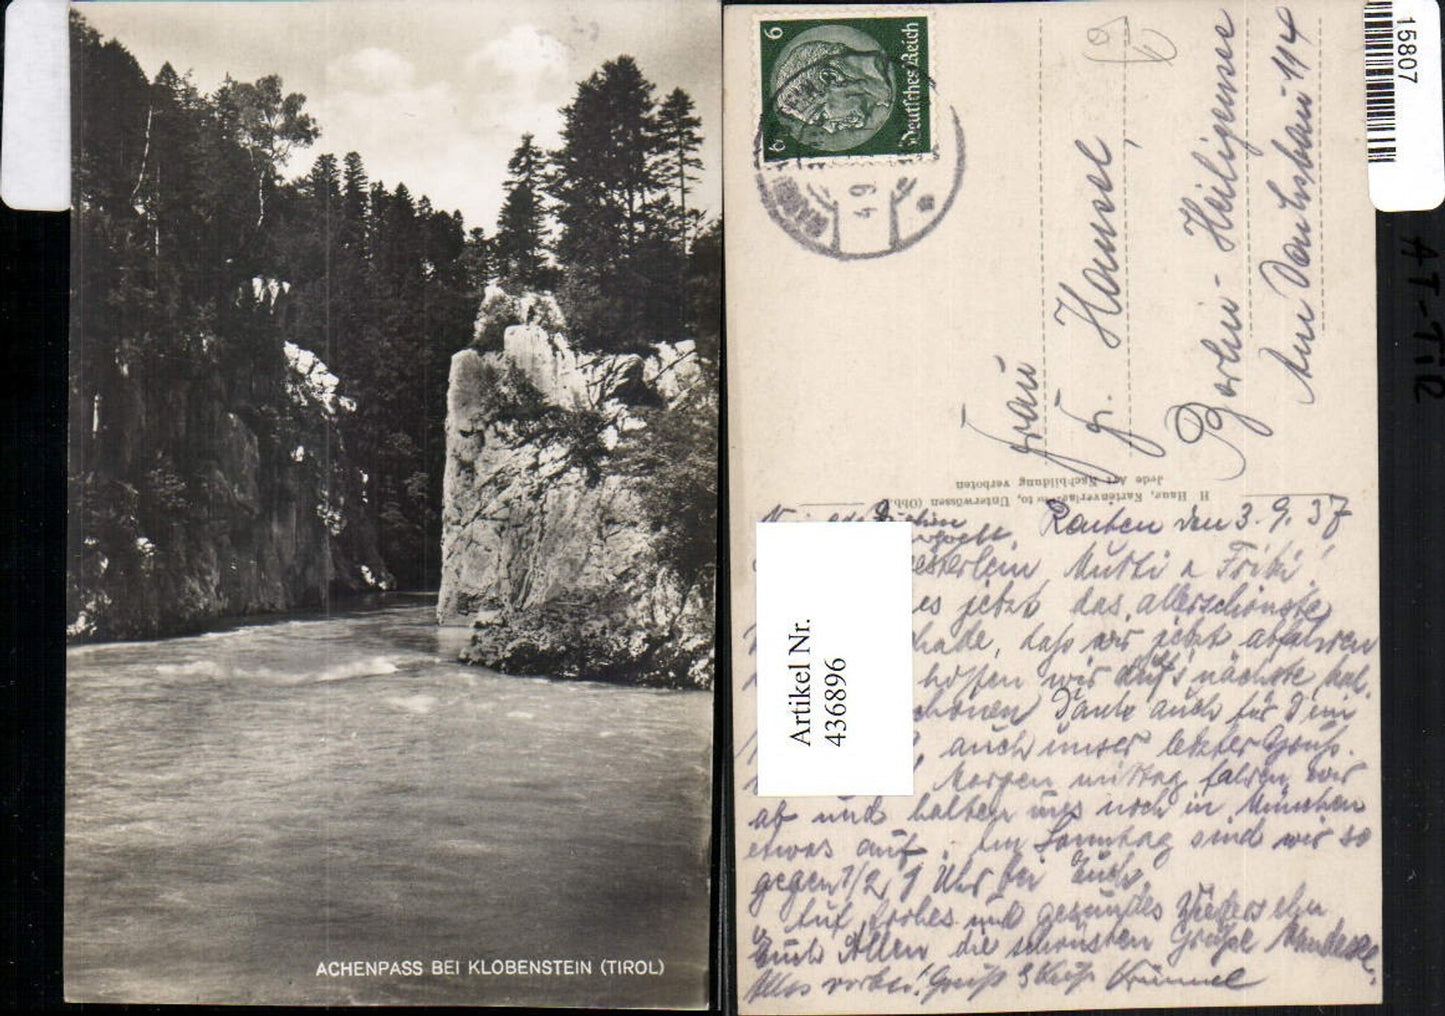 ACHENPASS BEI KLOBENSTEIN (TIROL)
15807
AT-Tir
Deutsches Reich
6
6
4 9
Frau
Fr. Hansel,
Berlin-Heiligensee
Am Dachsbau 114
H Haue, Kartenverlag Unterwössen (Obb.)
Jede Art Nachbildung verboten
Artikel Nr.
436896
den 3. 9. 37
Mutti u Fritzi!
es jetzt das allerschönste
habe, daß wir jetzt abfahren
hoffen wir auf's nächste mal.
schönen Dank auch für Dein
auch unser letzter Gruß.
Morgen mittag fahren wir
ab und halten uns noch in München
etwas auf. Am Sonntag sind wir so
gegen 1/2 9 Uhr bei Euch.
Auf frohes und gesundes Wiedersehn
Euch Allen die schönsten Grüße
Alles vorbei! Gruß & Kuß Krümmel